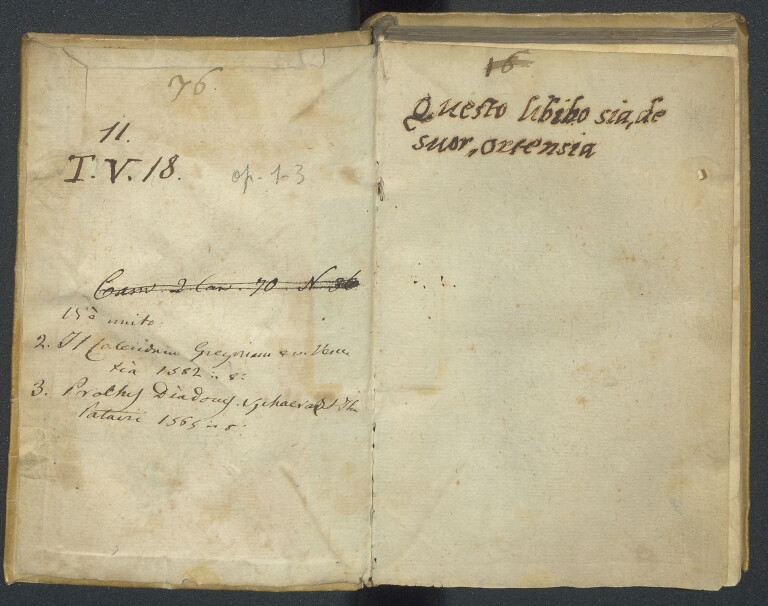 76.
11.
T. V. 18.
op. 1-3
2. 70. N. 36
unito
2. Il Calendario Gregoriano in Vene
tia 1582
3. Proclus Diadocus
Patavii 1565
16
Questo libiho sia, de
suor, ortensia